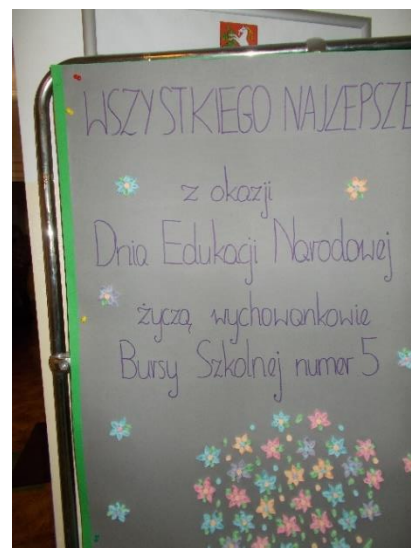 WSZYSTKIEGO NAJLEPSZE
z okazji
Dnia Edukacji Narodowej
życzą wychowankowie
Bursy Szkolnej numer 5